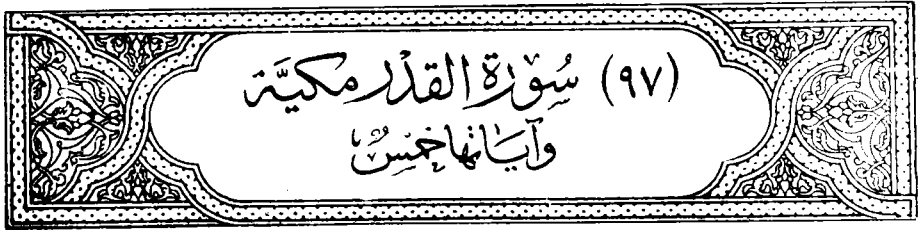 (٩٧) سُورَة القَدْر مكيَّة
وآيَاتها خمسٌ